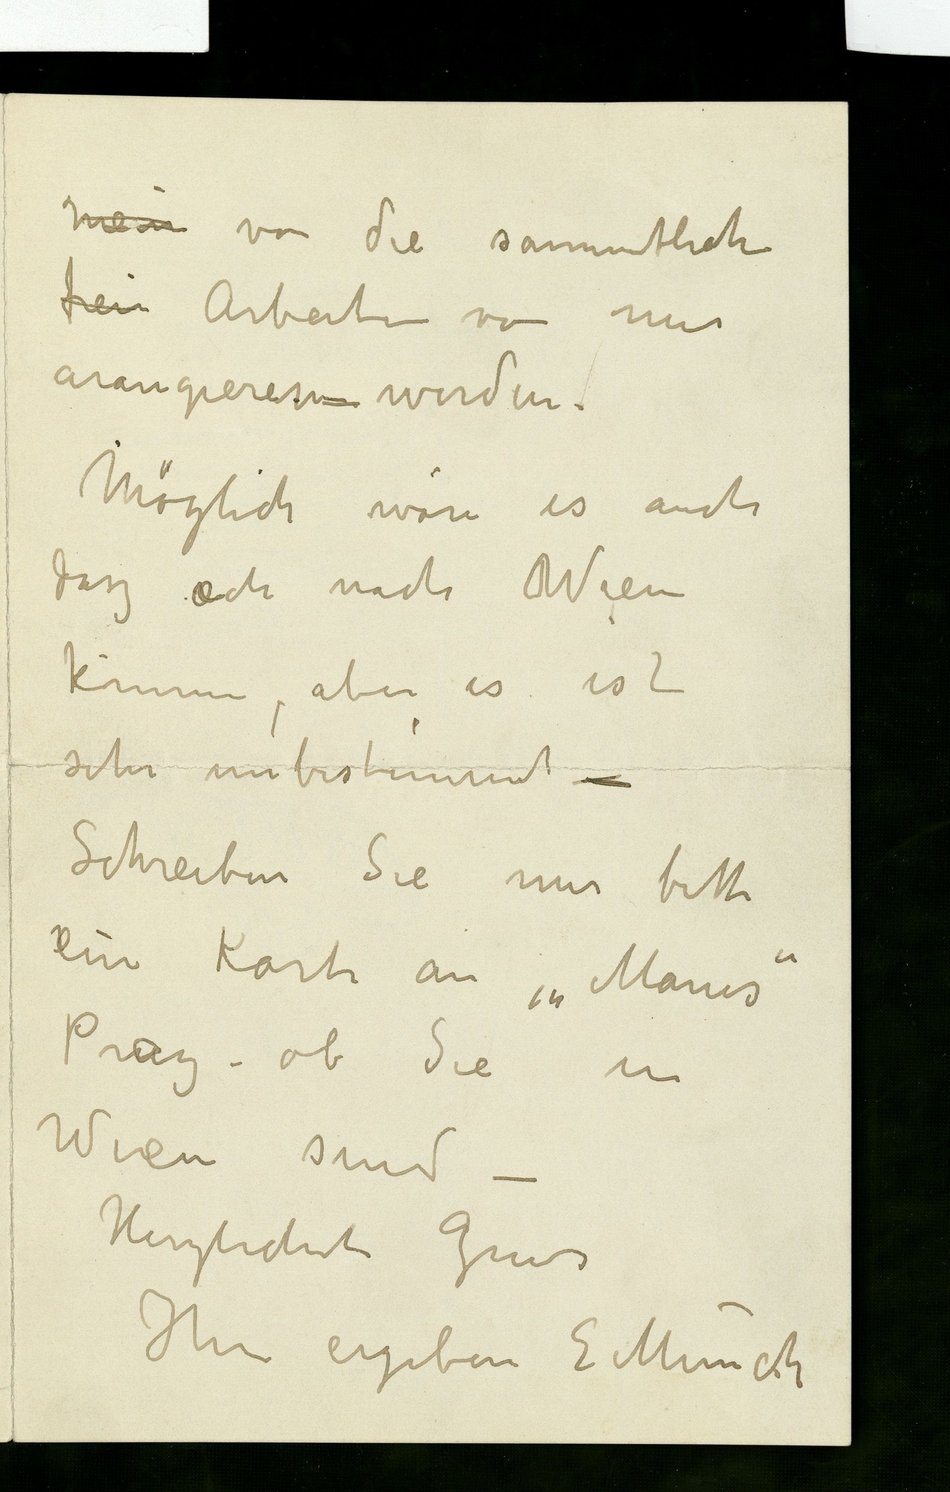 mein von die sammtliche
fein Arbeiten von mir
arangieren werden.
Möglich wäre es auch
dasz ich nach Wien
kimme, aber es ist
sehr unbestimmt —
Schreiben Sie mir bitte
ein Karte an „Manes"
Prag - ob Sie in
Wien sind —
Herzlichste Grus
Ihr ergeben E Munch